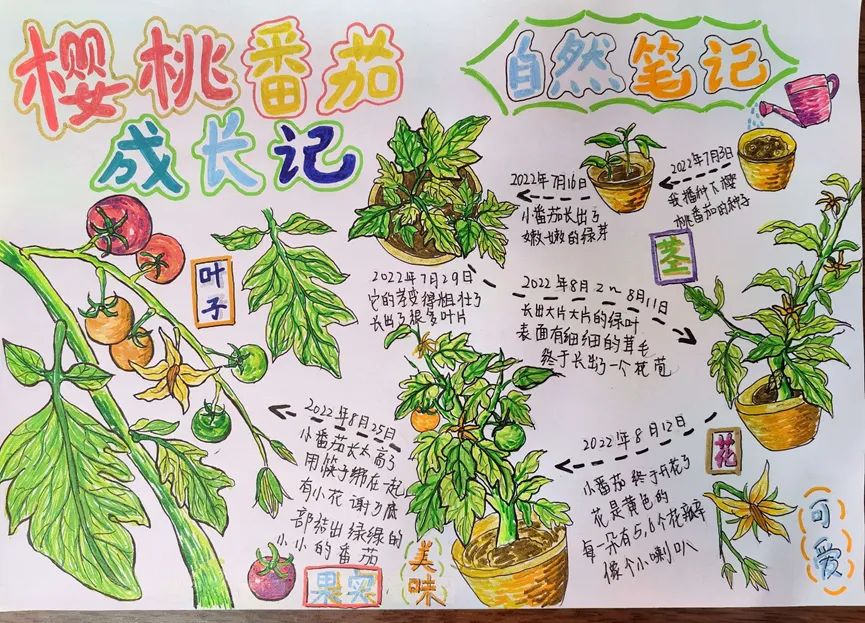 樱桃番茄
成长记
自然笔记
2022年7月3日
我播种下樱
桃番茄的种子
2022年7月16日
小番茄长出了
嫩嫩的绿芽
2022年7月29日
它的茎变得粗壮了
长出了很多叶片
2022年8月2~8月11日
长出大片大片的绿叶
表面有细细的茸毛
终于长出了一个花苞
茎
叶子
2022年8月12日
小番茄终于开花了
花是黄色的
每一朵有5,6个花瓣
像个小喇叭
花
可爱
2022年8月25日
小番茄长太高了
用筷子绑在一起
有小花谢了底
部结出绿绿的
小小的番茄
果实
美味